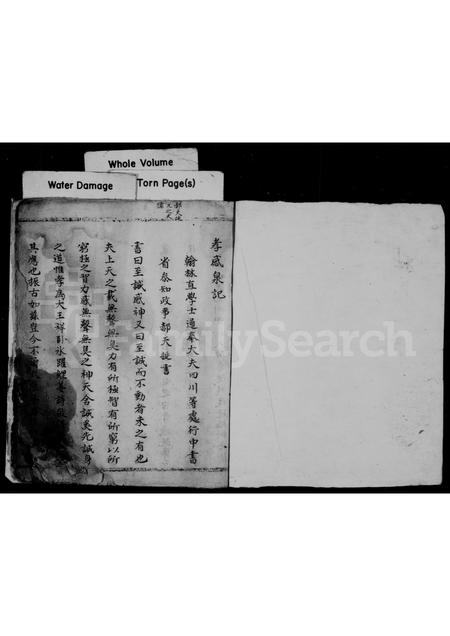 Whole Volume
Water Damage
Torn Page(s)
孝感泉記
翰林直學士通奉大夫四川等處行中書
省參知政事郝天挺書
書曰至諴感神又曰至誠而不動者未之有也
夫上天之載無聲無臭力有所極智有所窮以所
窮極之智力感無聲無臭之神天舍誠奚先誠身
之道惟孝為大王祥卧冰躍鯉
其應也振古如茲豈今不
FamilySearch